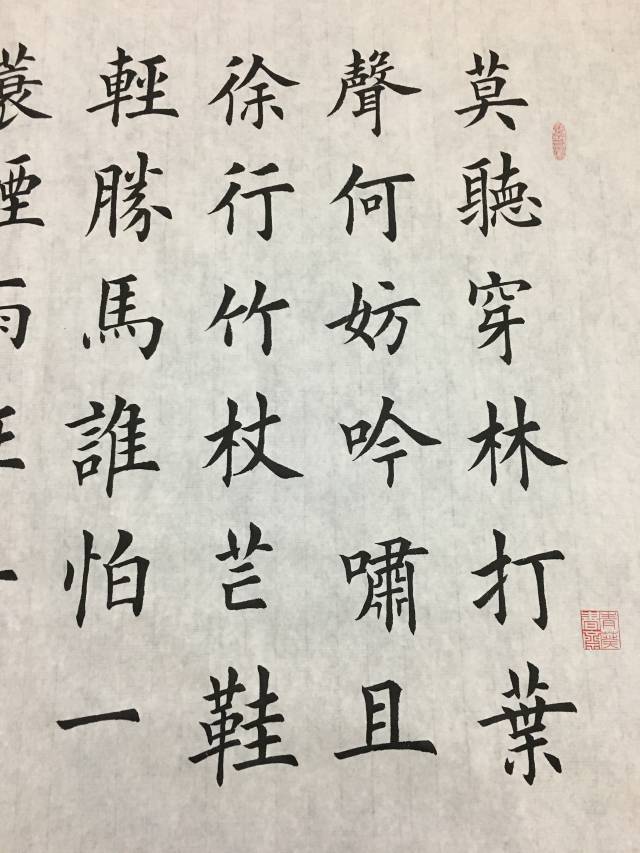 莫聽穿林打葉
聲何妨吟嘯且
徐行竹杖芒鞋
輕勝馬誰怕一
蓑煙雨